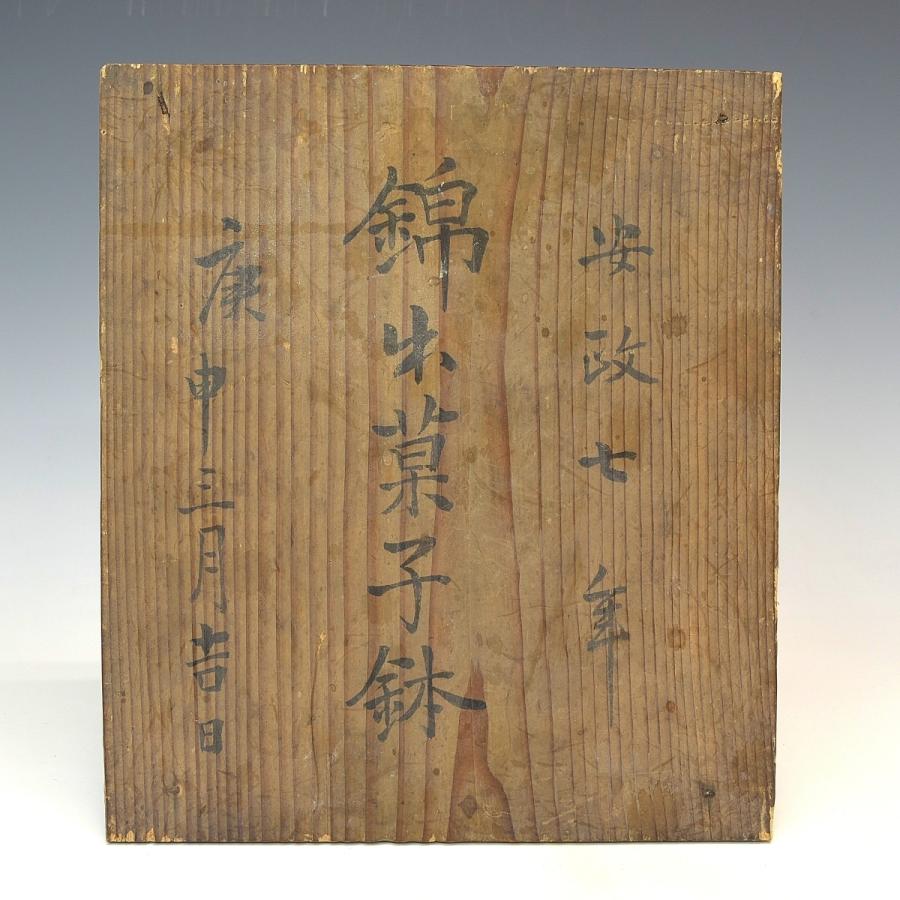 安政七年
錦出菓子鉢
庚申三月吉日